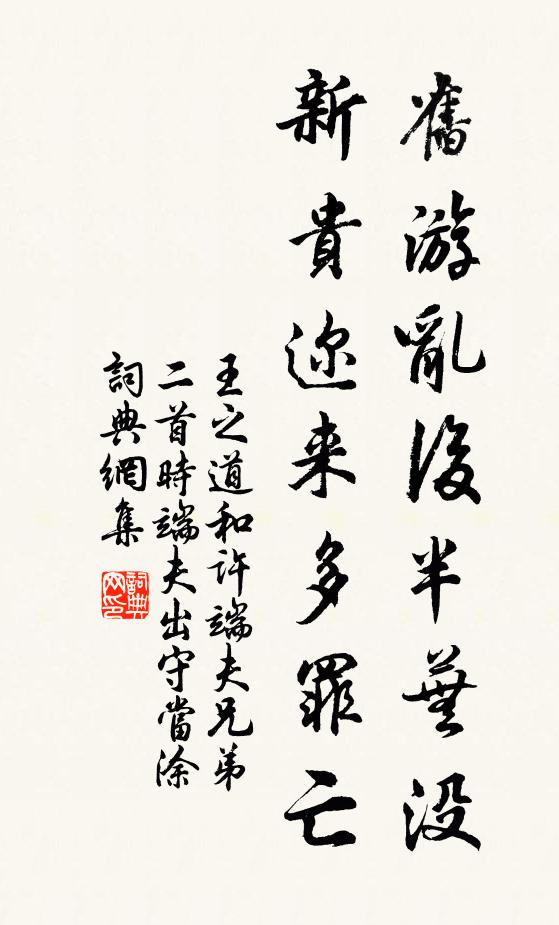 舊游亂後半蕪没
新貴迩来多罪亡
王之道和许端夫兄弟
二首時端夫出守當涂
詞典網集
詞典网印